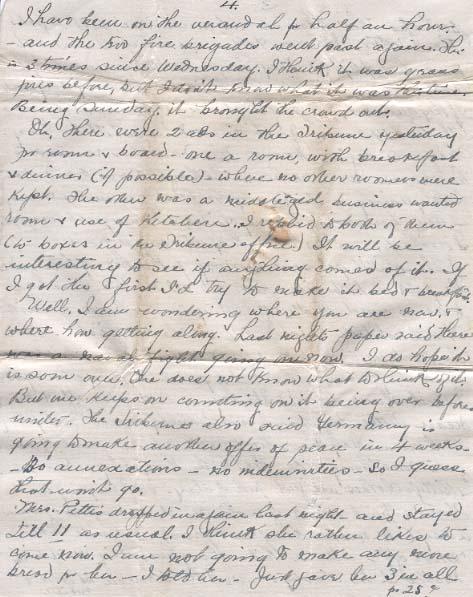 4.
I have been on the verandah for half an hour
- and the two fire brigades went past again. This
is 3 times since Wednesday. I think it was grass
fires before, but I don't know what it was this time.
Being Sunday, it brought the crowd out.
Oh, there were 2 ads in the Tribune yesterday
for room & board - one a room, with breakfast
& dinner (if possible) - where no other roomers were
kept. The other was a middle aged business wanted
room & use of kitchen. I replied to both of them
(to boxes in the Tribune office) It will be
interesting to see if anything comes of it. If
I got the first I'd try to make it bed & breakfast
Well, I am wondering where you are now, &
where how getting along. Last night's paper said there
was a naval fight going on now. I do hope it
is soon over. One does not know what to think of it.
But one keeps on counting on it being over before
winter. The Tribune also said Germany is
going to make another offer of peace in 4 weeks -
- No annexations - no indemnities - So I guess
that won't go.
Mrs. Pettis dropped in again last night - and stayed
till 11 as usual. I think she rather likes to
come now. I am not going to make any more
bread for her - I told her - Just gave her 3 in all
for 25¢